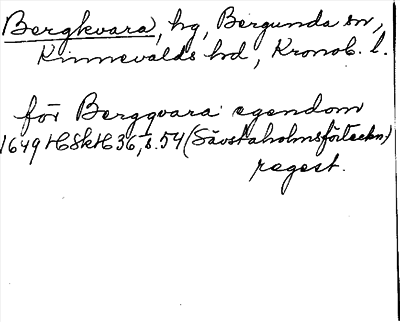 Bergkvara, hg, Bergunda sn,
Kinnevalds hd, Kronob. l.
för Bergqvara egendom
1649 HSkH 36, s. 54 (Sävstaholmsförteckn)
regest.